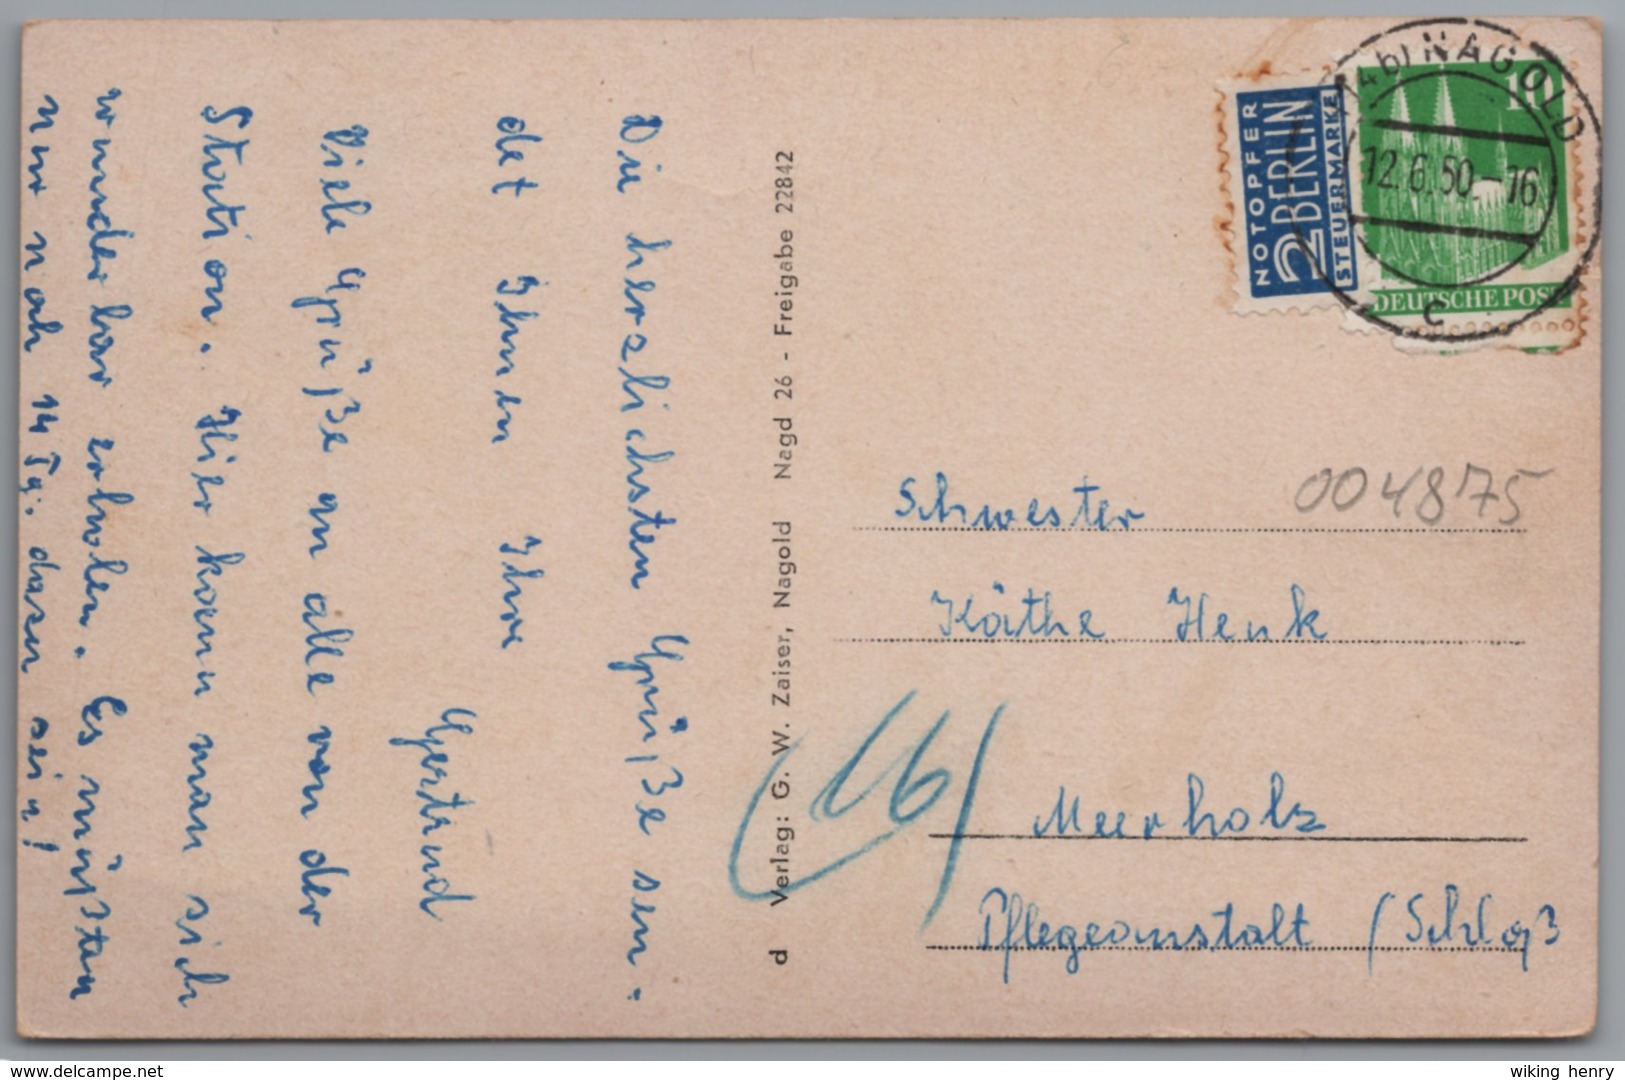 Die herzlichsten Grüße sen-
det Ihnen Ihre
Gertrud
Viele Grüße an alle von der
Station. Hier kann man sich
wunderbar erholen. Es müßten
nur noch 14 Tg. dazu sein!
d Verlag: G. W. Zaiser, Nagold Nagd 26 - Freigabe 22842
NOTOPFER
2 BERLIN
STEUERMARKE
10
DEUTSCHE POST
(14b) NAGOLD
12.6.50.-16
c
004875
Schwester
Käthe Henk
(16)
Meerholz
Pflegeanstalt (Schloß
www.delcampe.net
wiking henry